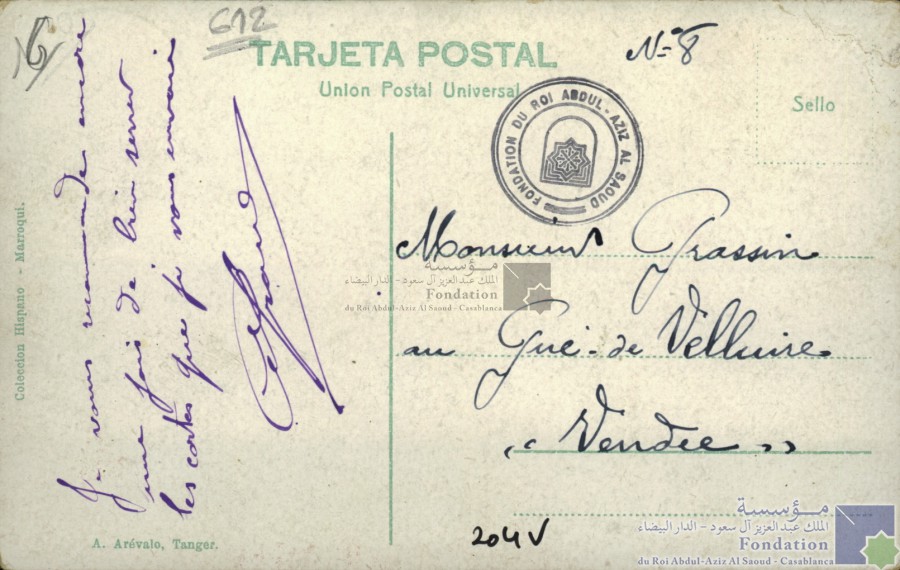 6
612
TARJETA POSTAL
Union Postal Universal
N= 8
Sello
FONDATION DU ROI ABDUL-AZIZ AL SAOUD
Je vous recommande encore
une fois de bien serrer
les cartes que je vous envoie
Coleccion Hispano - Marroqui.
A. Arévalo, Tanger.
Monsieur Grassin
au Gué-de Velluire
"Vendée"
204V
مؤسسة
الملك عبد العزيز آل سعود - الدار البيضاء
Fondation
du Roi Abdul-Aziz Al Saoud - Casablanca
مؤسسة
الملك عبد العزيز آل سعود - الدار البيضاء
Fondation
du Roi Abdul-Aziz Al Saoud - Casablanca